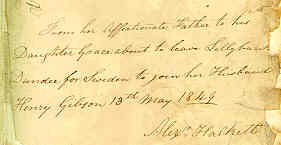 From her Affectionate Father to his
Daughter Grace about to leave Lillybank
Dundee for Sweden to join her Husband
Henry Gibson 13th May 1849
Alexr. Hackett